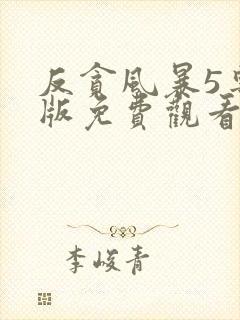 反貪風暴5
版免費觀看
李峻青